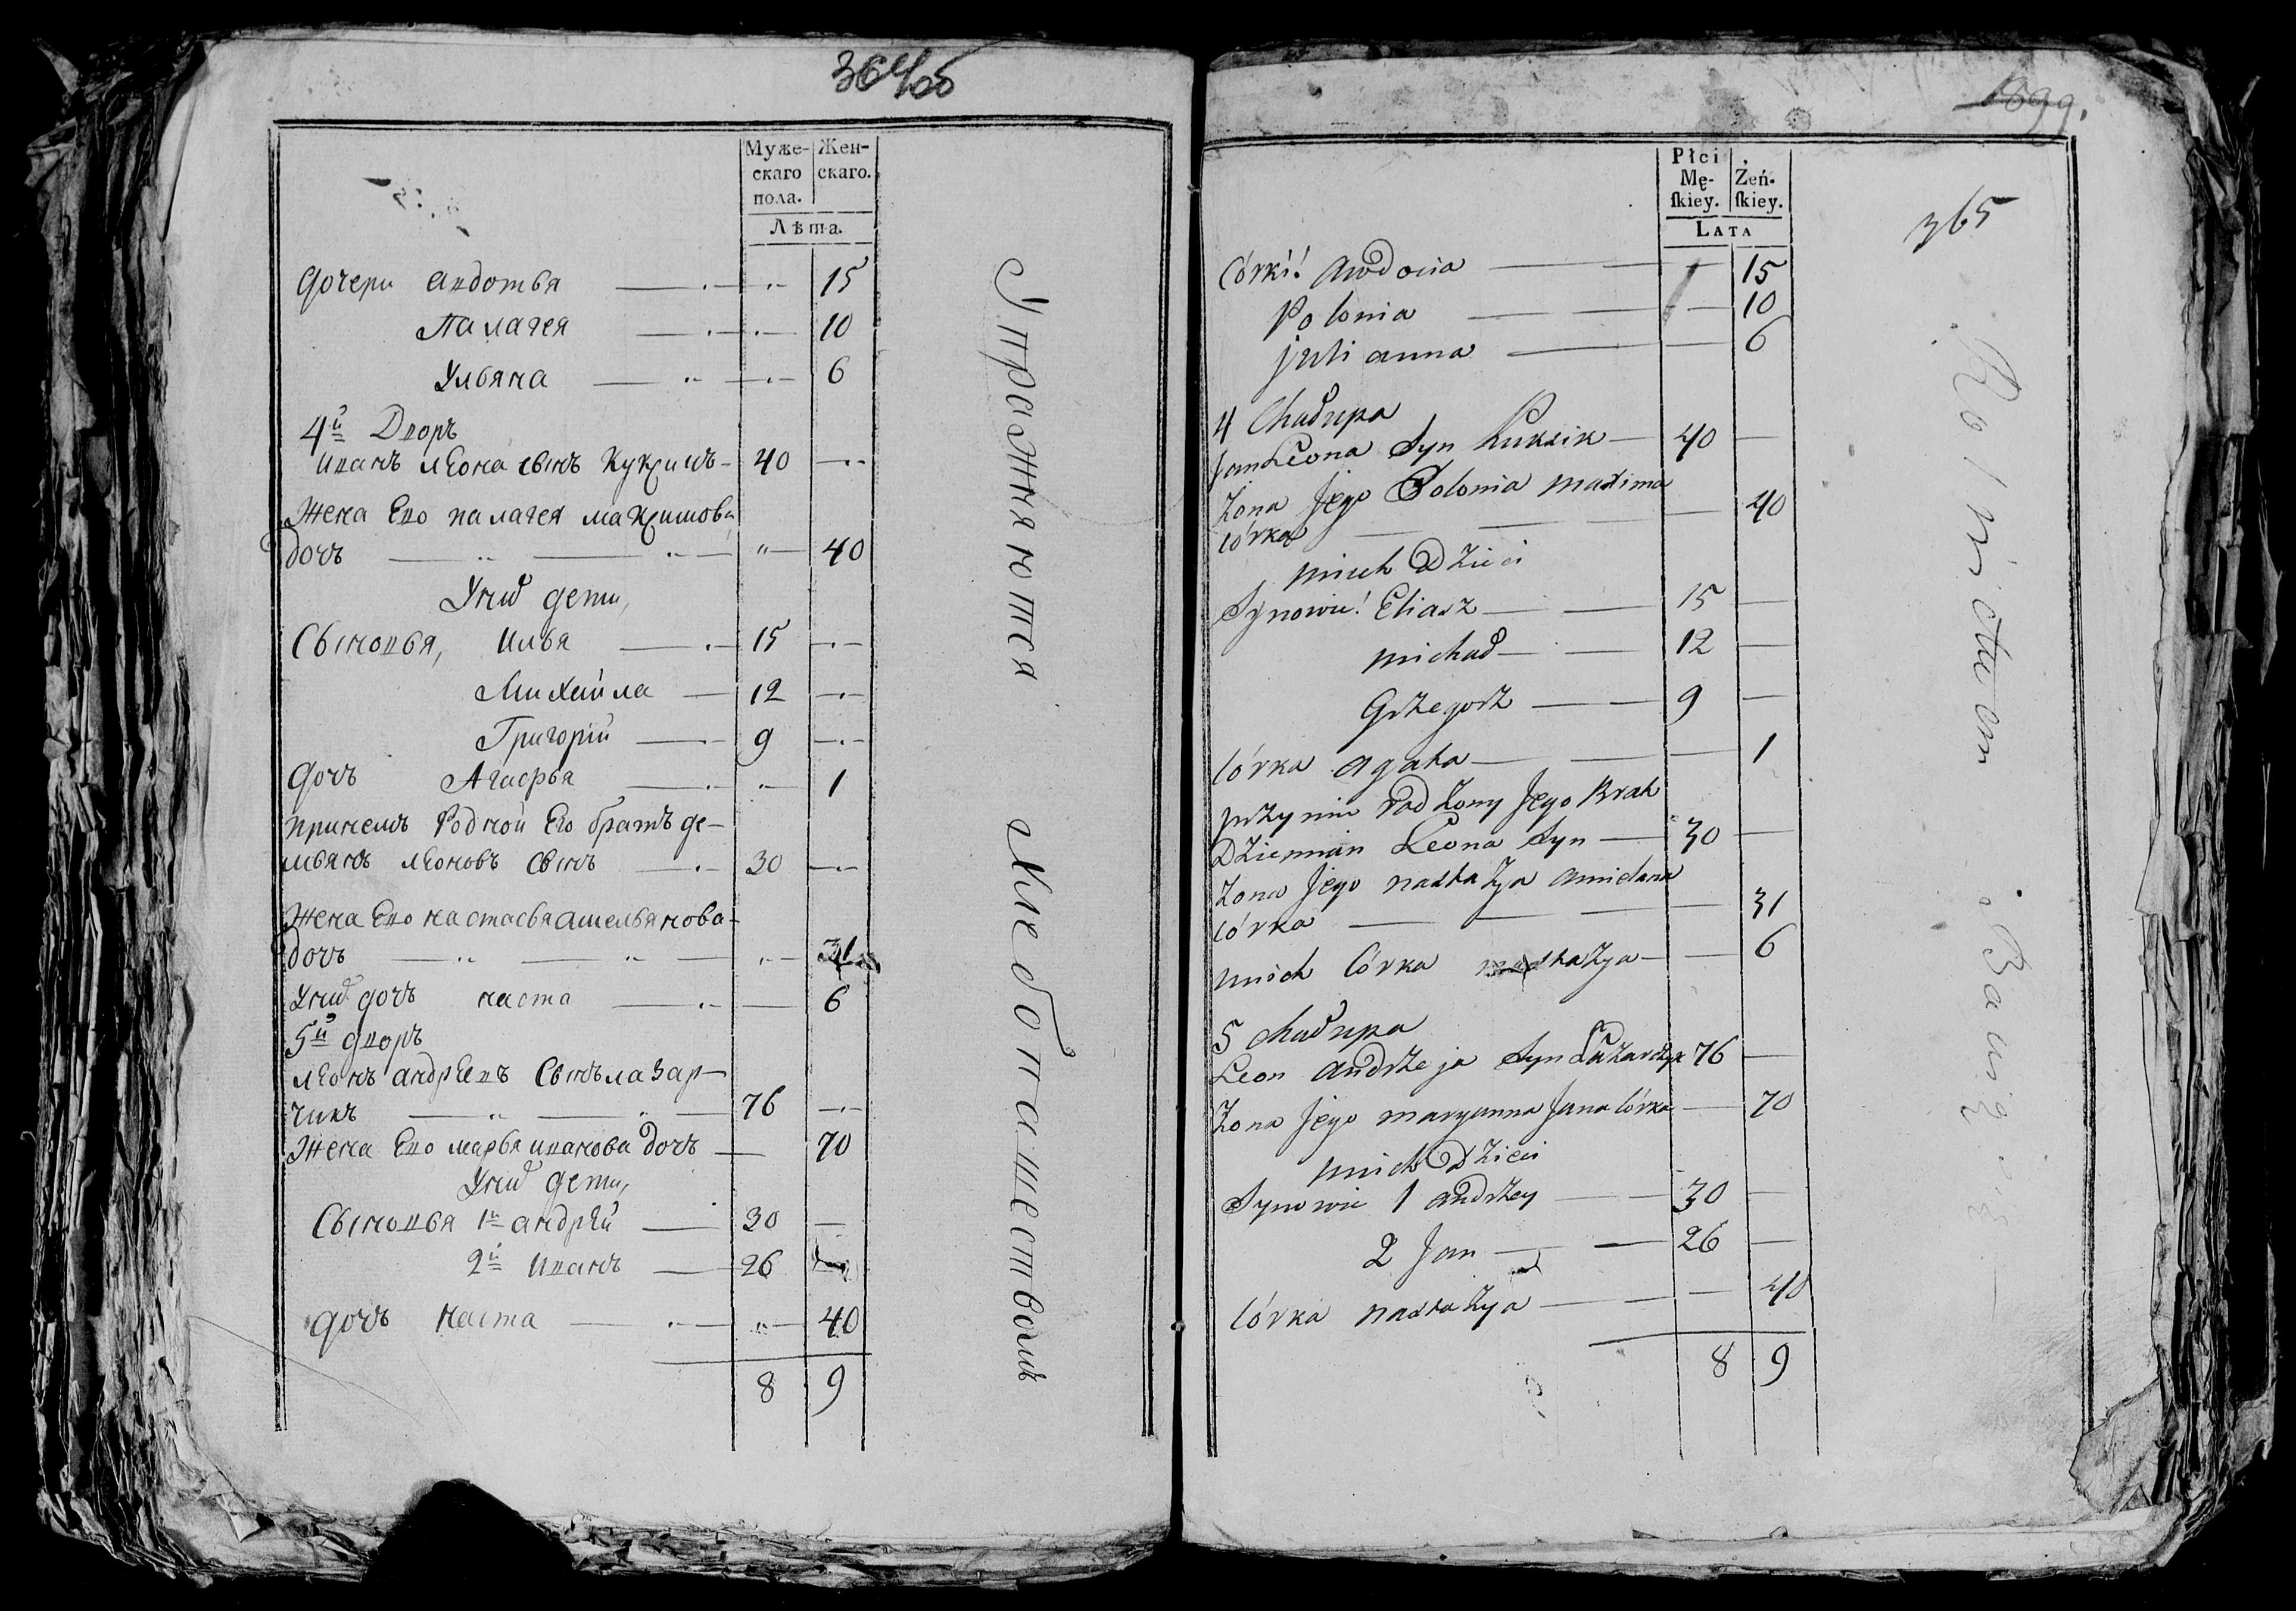 364об
Муже- Жен-
скаго скаго.
пола.
Лѣта.
Дочери Авдотья 15
Палагея 10
Ульяна 6
4й Дворъ
Иванъ Леона сынъ Куксикъ 40
Жена Ево палагея максимова
дочь 40
У нид дети,
Сыновья, Илья 15
Михайла 12
Григорій 9
Дочь Агафья 1
принемъ Родной Ево братъ де-
мьянъ леоновъ сынъ 30
Жена Ево настасья амельянова
дочь 31
У нид дочь наста 6
5й дворъ
леонъ андреевъ сынъ лазар-
чикъ 76
Жена Ево марья иванова дочь 70
У нид дети,
Сыновья 1й андрей 30
2й Иванъ 26
дочь наста 40
8 9
Упражняются Хлебопашествомъ
1899.
365
Płci Żeń-
Mę- ſkiey.
ſkiey.
LATA
Córki! Awdocia 15
Polonia 10
Julianna 6
4 Chałupa
Jan Leona Syn Kuksik 40
Żona Jego Polonia maxima
Córka 40
unich Dzieci
Synowie! Eliasz 15
michał 12
Grzegorz 9
Córka agata 1
przynim rodzony Jego Brat
Dziemian Leona Syn 30
Żona Jego nastazya amielana
Córka 31
unich Córka nastazya 6
5 chałupa
Leon Andrzeja Syn Łazarczyk 76
Żona Jego maryanna Jana Córka 70
unich Dzieci
Synowie 1 andrzey 30
2 Jan 26
Córka nastazya 40
8 9
Rolnictwem